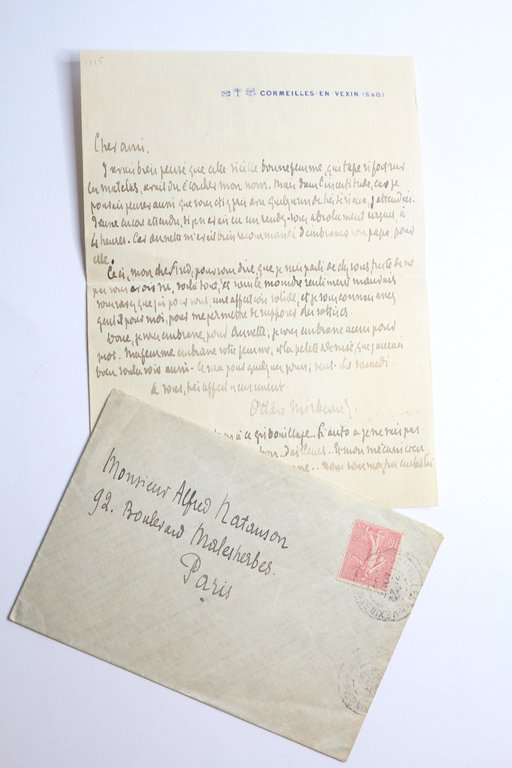 115
CORMEILLES-EN VEXIN (S&O.)
Cher ami.
J'avais bien pensé que cette vieille bonne femme, qui tape si fort sur
les matelas, avait dû écorcher mon nom. Mais dans l'incertitude, car je
pouvais penser aussi que vous étiez pris avec quelqu'un de très sérieux, j'attendis.
J'eusse encore attendu, si je n'avais eu un rendez-vous absolument urgent à
4 heures. Car Annette m'avait bien recommandé d'embrasser son papa, pour
elle.
Ceci, mon cher Fred, pour vous dire, que je suis parti de chez vous, triste de ne
pas vous avoir vu, voilà tout, et sans le moindre sentiment mauvais
vous savez que j'ai pour vous, une affection solide, et je vous connais assez
gentil pour moi, pour me permettre de supposer des sottises.
Donc, je vous embrasse, pour Annette; je vous embrasse aussi pour
moi. Ma femme embrasse votre femme, et la petite Denise, que j'aurais
bien voulu voir aussi. Ce sera pour quelques jours; peut-être samedi.
à vous, très affectueusement
Octave Mirbeau.
à ce gribouillage.. Si auto a je ne vais pas
d'ailleurs. Et mon mécanicien
nous
Monsieur Alfred Natanson
92. Boulevard Malesherbes.
Paris
10
VEXIN